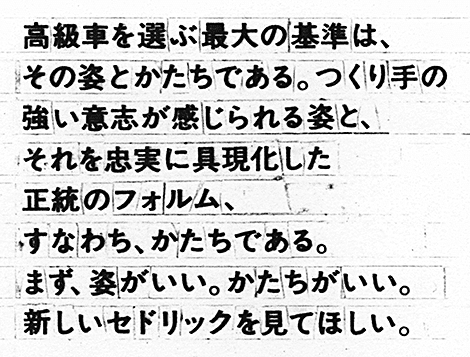 高級車を選ぶ最大の基準は、
その姿とかたちである。つくり手の
強い意志が感じられる姿と、
それを忠実に具現化した
正統のフォルム、
すなわち、かたちである。
まず、姿がいい。かたちがいい。
新しいセドリックを見てほしい。